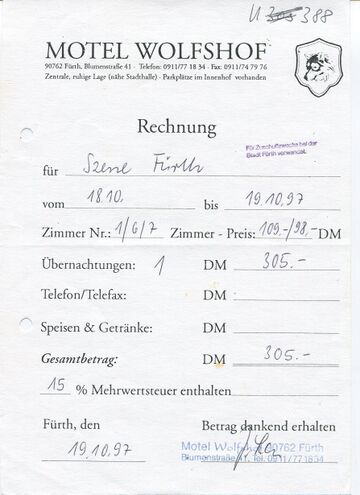 U 305 388
MOTEL WOLFSHOF
90762 Fürth, Blumenstraße 41 · Telefon: 0911/77 18 34 · Fax: 0911/74 79 76
Zentrale, ruhige Lage (nähe Stadthalle) · Parkplätze im Innenhof vorhanden
Rechnung
Für Zuschußzwecke bei der
Stadt Fürth verwendet.
für Szene Fürth
vom 18.10. bis 19.10.97
Zimmer Nr.: 1/6/7 Zimmer - Preis: 109.-/98,- DM
Übernachtungen: 1 DM 305.-
Telefon/Telefax: DM
Speisen & Getränke: DM
Gesamtbetrag: DM 305.-
15 % Mehrwertsteuer enthalten
Fürth, den Betrag dankend erhalten
19.10.97
Motel Wolfshof 90762 Fürth
Blumenstraße 41, Tel. 0911/771834